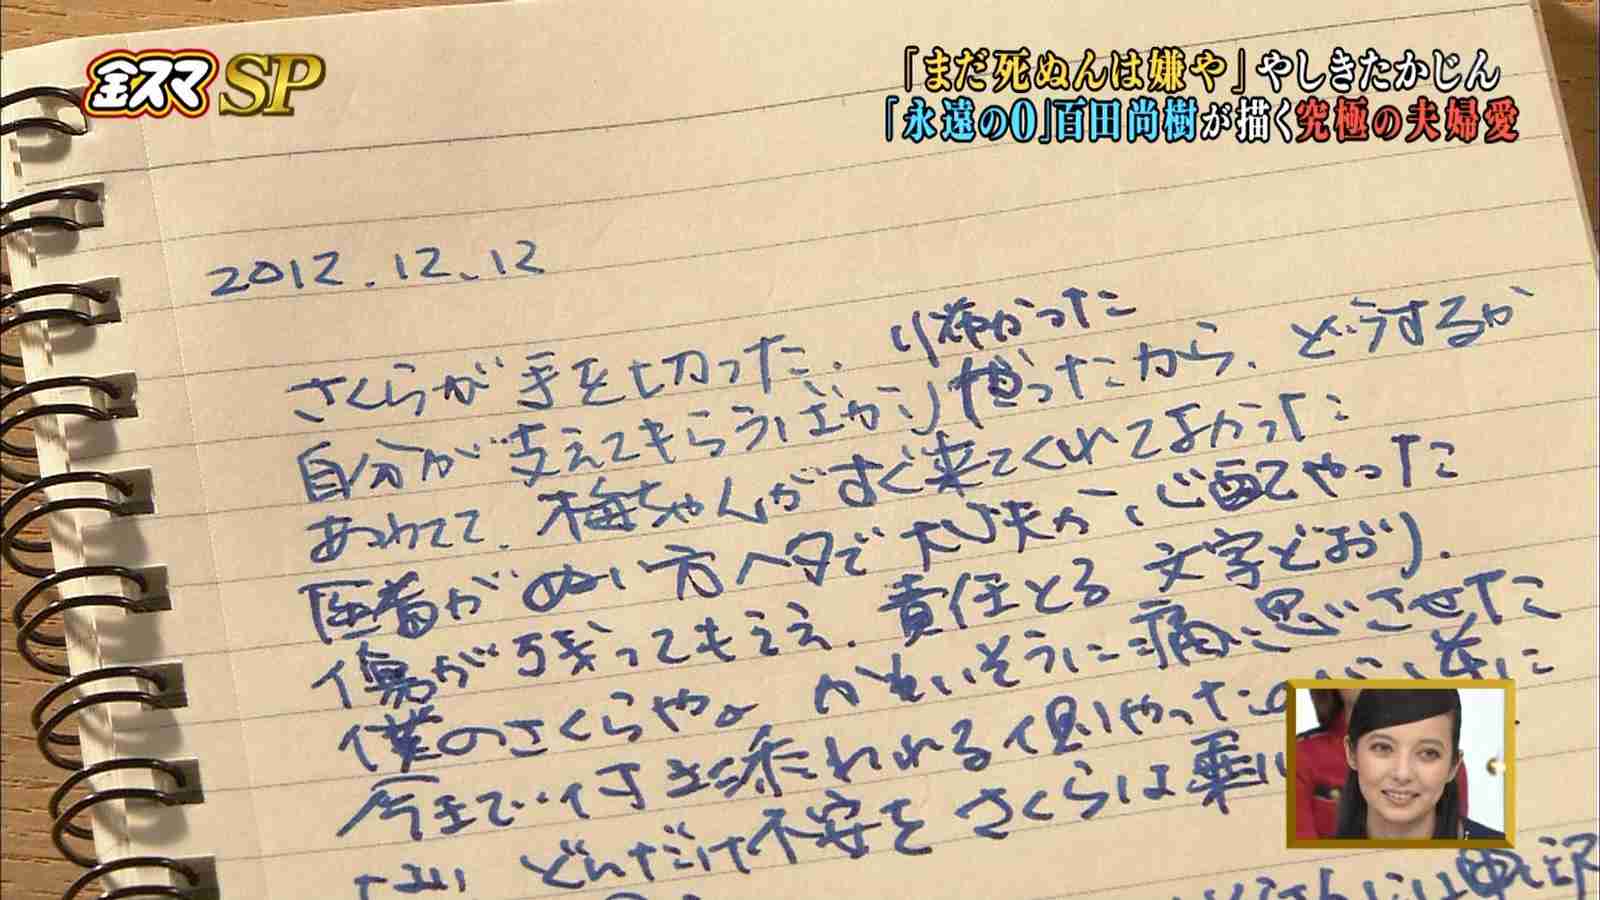 金スマSP
「まだ死ぬんは嫌や」やしきたかじん
「永遠の0」百田尚樹が描く究極の夫婦愛
2012.12.12
さくらが手を切った. 怖かった
自分が支えてもらうばかりやったから、どうするか
あわてて、梅ちゃんがすぐ来てくれてよかった
医者がぬい方ヘタで大丈夫か心配やった
傷が残ってもええ. 責任とる 文字どおり.
僕のさくらやよ かわいそうに痛い思いさせた
今まで付き添われる側やったのが逆に
どんだけ不安をさくらは乗り